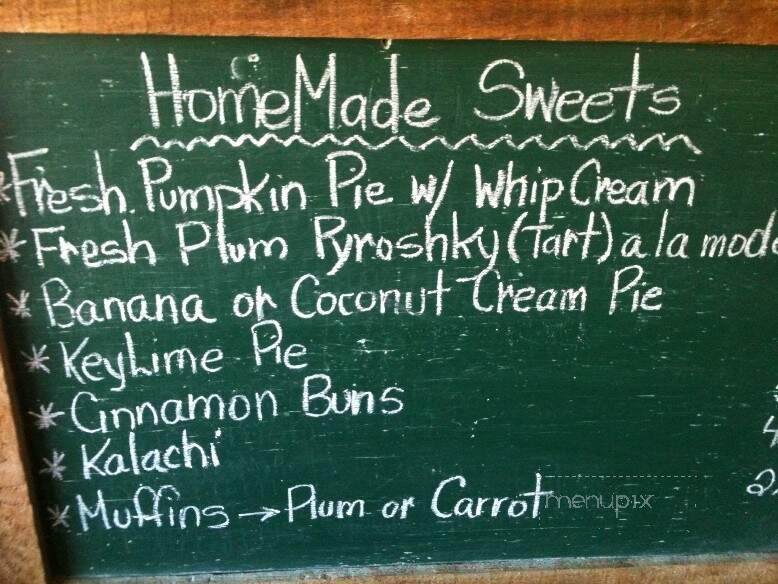 HomeMade Sweets
* Fresh Pumpkin Pie w/ Whip Cream
* Fresh Plum Pyroshky (Tart) a la mode
* Banana or Coconut Cream Pie
* KeyLime Pie
* Cinnamon Buns
* Kalachi
* Muffins → Plum or Carrot
menupix